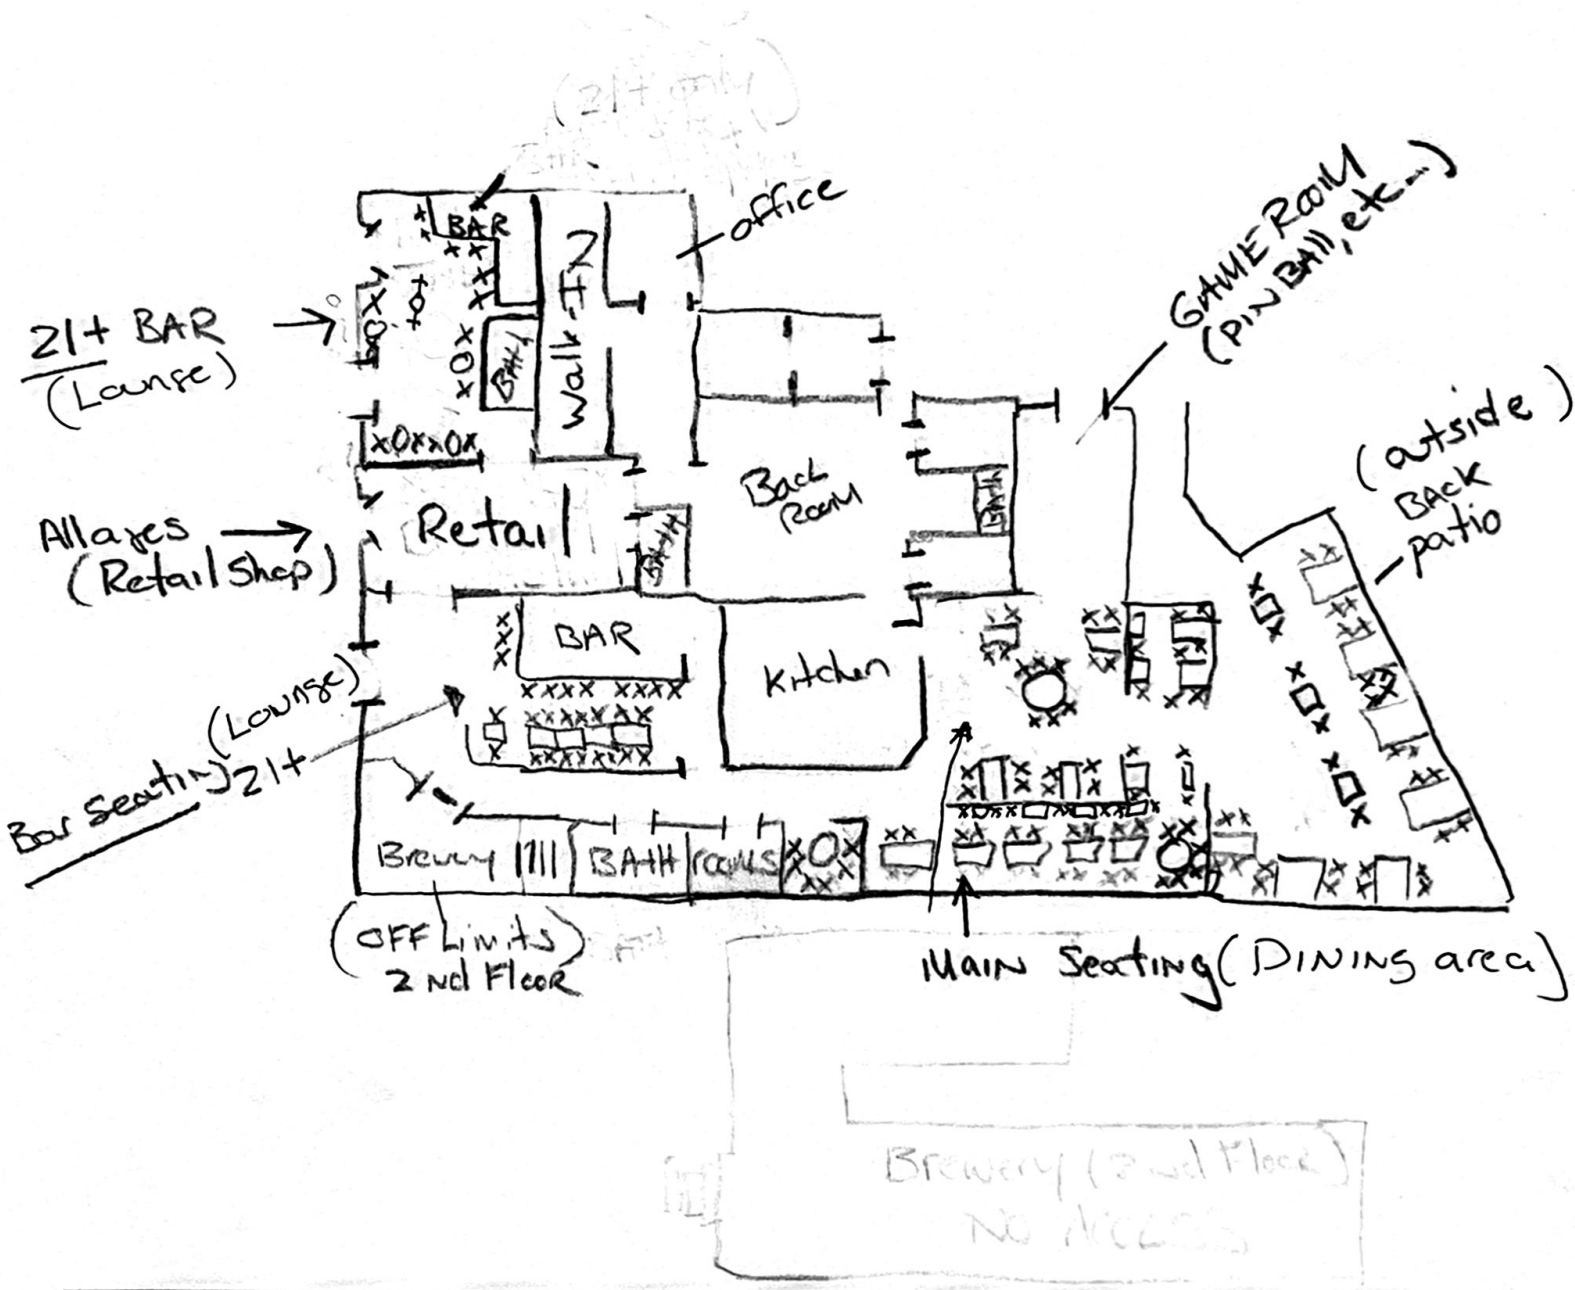 (21+ only)
office
GAME ROOM
(PINBAll, etc...)
BAR
Walk-IN
21+ BAR
(Lounge)
BATH
xOxxOx
(outside)
BACK
patio
Back
Room
BATH
All ages
(Retail Shop)
Retail
BATH
BAR
Kitchen
(Lounge)
Bar Seating 21+
Brewery
BATH rooms
(OFF Limits)
2nd Floor
Main Seating (DINING area)
Brewery (2nd Floor)
NO ACCESS